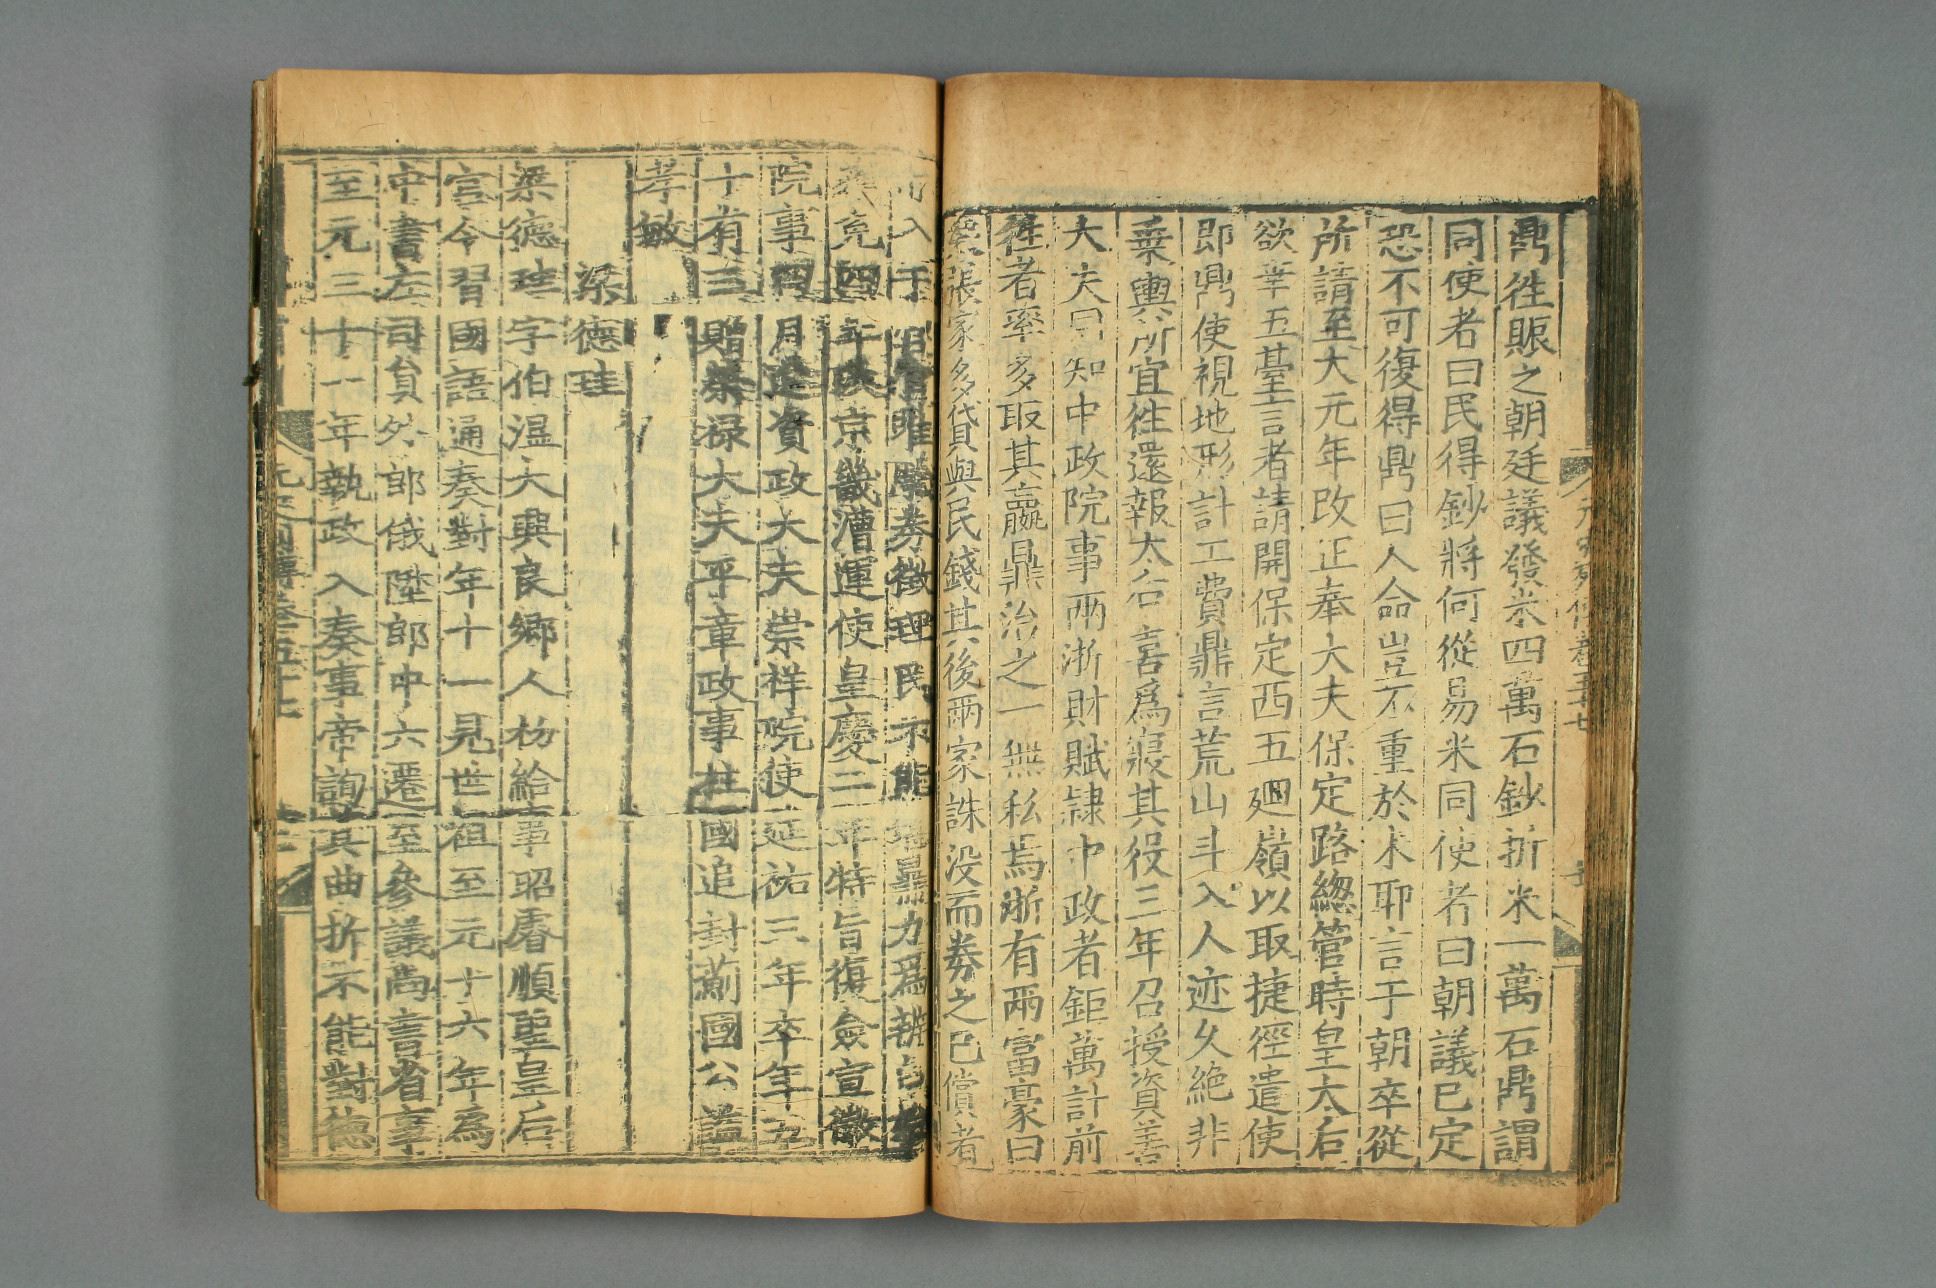 鼎徃賑之朝廷議發米四萬石鈔折米一萬石鼎謂
同使者曰民得鈔將何從易米同使者曰朝議已定
恐不可復得鼎曰人命豈不重於米耶言于朝卒從
所請至大元年改正奉大夫保定路總管時皇太后
欲幸五臺言者請開保定西五廻嶺以取捷徑遣使
即鼎使視地形計工費鼎言荒山斗入人迹久絶非
乗輿所宜徃還報太后喜爲寢其役三年召授資善
大夫同知中政院事兩浙財賦隷中政者鉅萬計前
徃者率多取其贏鼎治之一無私焉浙有兩富豪曰
張家多貸與民錢其後兩家誅没而券之已償者
入于官唯廣券徵理民不能鼎力爲辨
竟四年改京畿漕運使皇慶二年特旨復僉宣徽
院事四月進資政大夫崇祥院使延祐三年卒年五
十有三贈榮禄大夫平章政事柱國追封薊國公謚
孝敏
梁德珪
梁德珪字伯温大興良郷人初給事昭睿順聖皇后
宫令習國語通奏對年十一見世祖至元十六年爲
中書左司貟外郎俄陞郎中六遷至參議尚書省事
至元三十一年執政入奏事帝詢其曲折不能對德